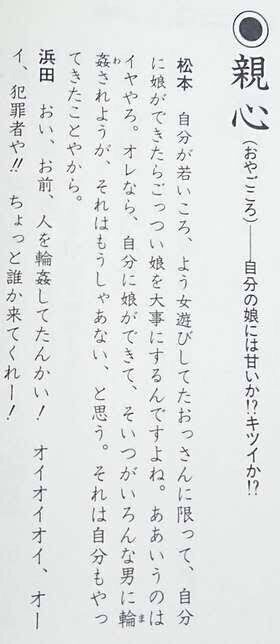 ●親心(おやごころ)——自分の娘には甘いか!?キツイか!?
松本 自分が若いころ、よう女遊びしてたおっさんに限って、自分
に娘ができたらごっつい娘を大事にするんですよね。ああいうのは
イヤやろ。オレなら、自分に娘ができて、そいつがいろんな男に輪ま
姦わされようが、それはもうしゃあない、と思う。それは自分もやっ
てきたことやから。
浜田 おい、お前、人を輪姦してたんかい! オイオイオイ、オー
イ、犯罪者や!! ちょっと誰か来てくれー!